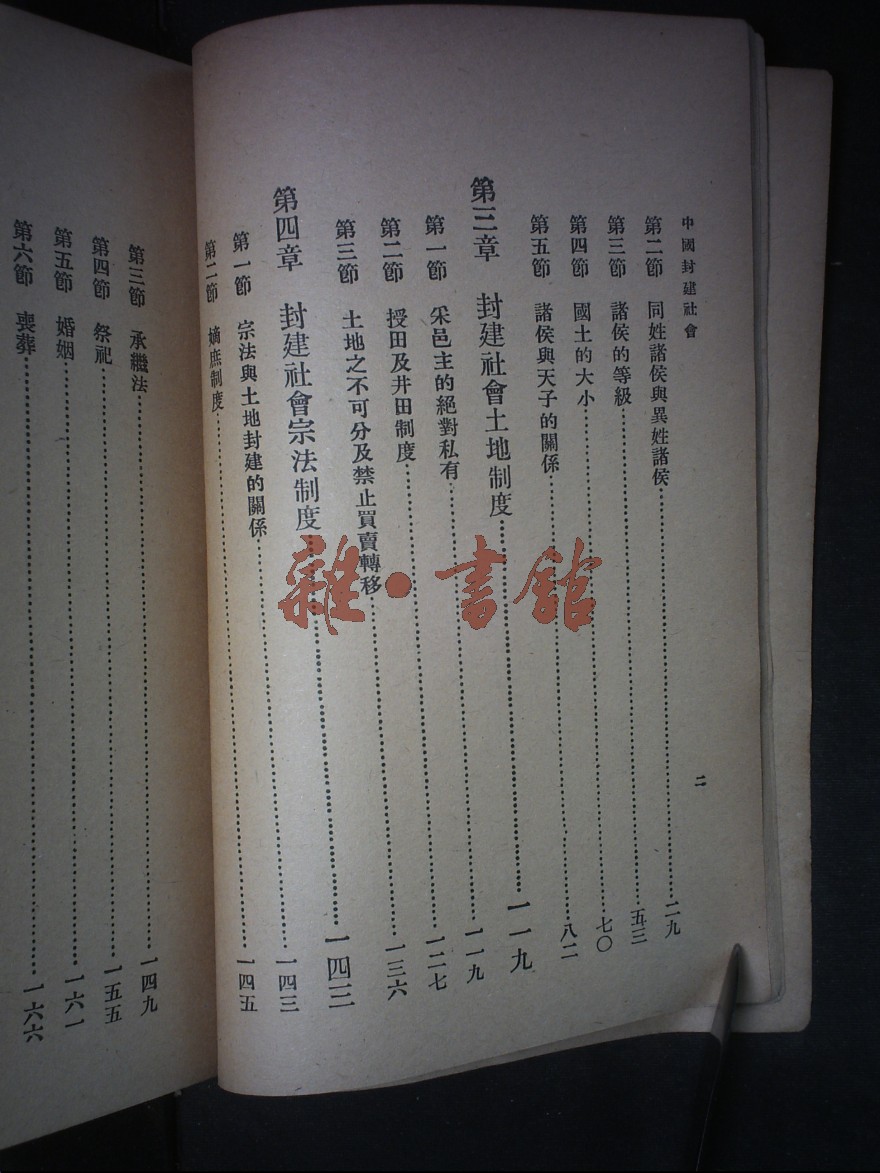 中國封建社會
二
第二節 同姓諸侯與異姓諸侯⋯⋯二九
第三節 諸侯的等級⋯⋯五三
第四節 國土的大小⋯⋯七〇
第五節 諸侯與天子的關係⋯⋯八二
第三章 封建社會土地制度⋯⋯一一九
第一節 采邑主的絕對私有⋯⋯一一九
第二節 授田及井田制度⋯⋯一二七
第三節 土地之不可分及禁止買賣轉移⋯⋯一三六
第四章 封建社會宗法制度⋯⋯一四三
第一節 宗法與土地封建的關係⋯⋯一四三
第二節 嫡庶制度⋯⋯一四五
第三節 承繼法⋯⋯一四九
第四節 祭祀⋯⋯一五五
第五節 婚姻⋯⋯一六一
第六節 喪葬⋯⋯一六六
雜·書館